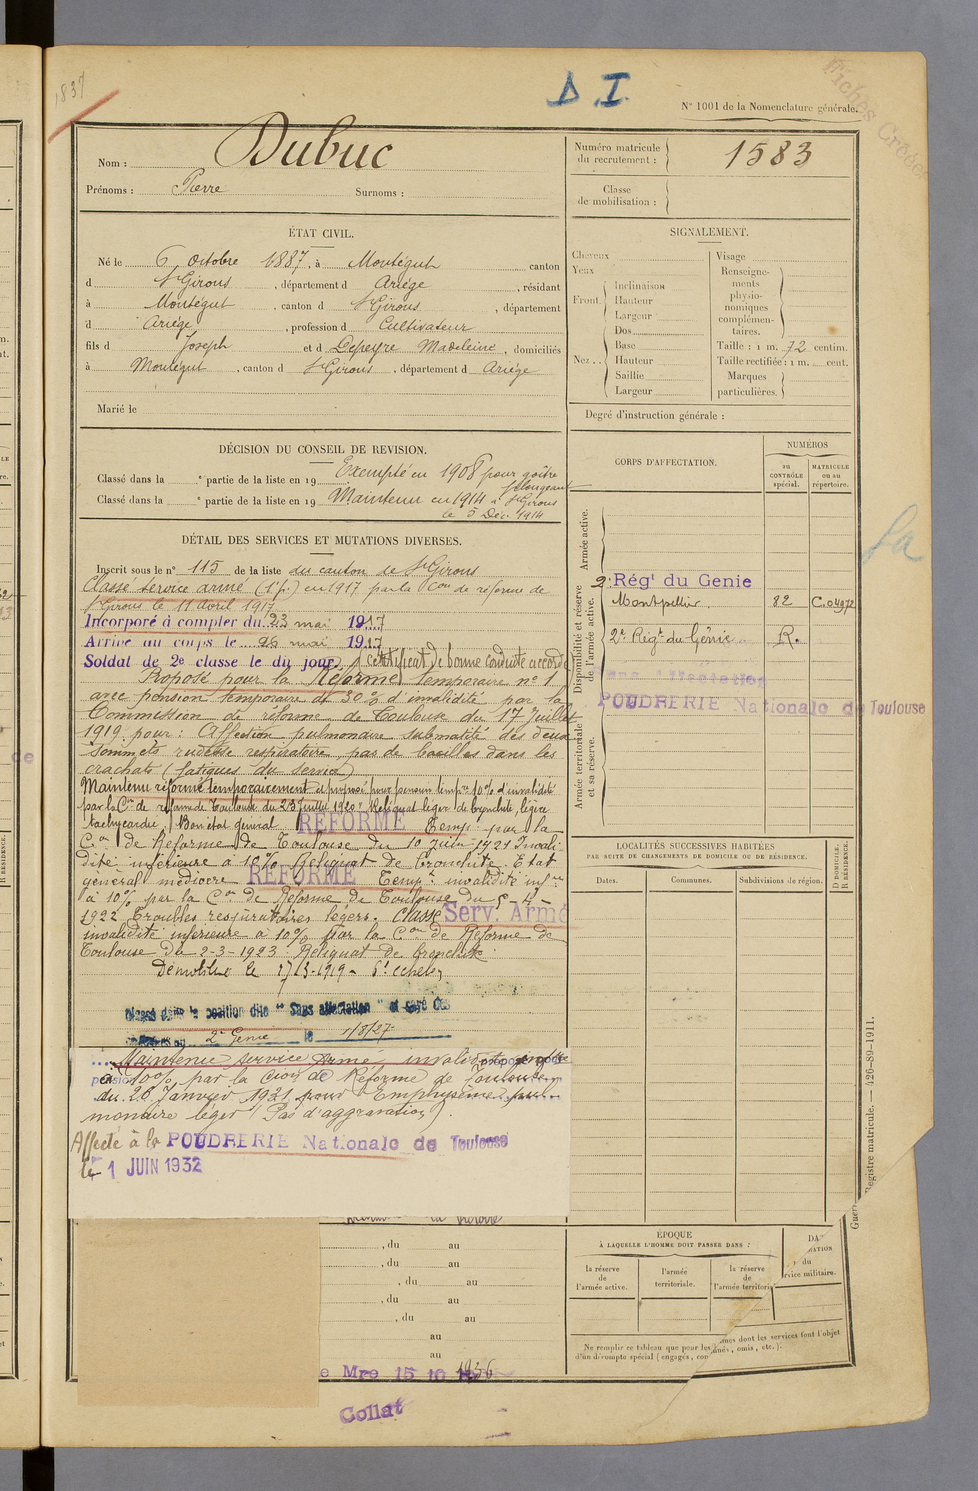 1837
D.I.
N° 1001 de la Nomenclature générale.
Fiches Créées
Nom : Dubuc
Prénoms : Pierre Surnoms :
Numéro matricule du recrutement : 1583
Classe de mobilisation :
ÉTAT CIVIL.
Né le 6 Octobre 1887, à Montégut canton
d St Girons, département d Ariège, résidant
à Montégut, canton d St Girons, département
d Ariège, profession d Cultivateur
fils d Joseph et d Depeyre Madeleine, domiciliés
à Montégut, canton d St Girons, département d Ariège
Marié le
SIGNALEMENT.
Cheveux
Yeux
Front.
Inclinaison
Hauteur
Largeur
Nez..
Dos
Base
Hauteur
Saillie
Largeur
Visage
Renseignements physionomiques complémentaires.
Taille : 1 m. 72 centim.
Taille rectifiée : 1 m. cent.
Marques particulières.
Degré d'instruction générale :
DÉCISION DU CONSEIL DE REVISION.
Classé dans la e partie de la liste en 19 Exempté en 1908 pour goître
Classé dans la e partie de la liste en 19 Maintenu en 1914 à St Girons
le 5 Déc. 1914
DÉTAIL DES SERVICES ET MUTATIONS DIVERSES.
Inscrit sous le n° 115 de la liste du canton de St Girons
Classé service armé (1e p.) en 1917 par la Con de réforme de
St Girons le 11 Avril 1917
Incorporé à compter du 23 mai 1917
Arrivé au corps le 26 mai 1917
Soldat de 2e classe le dit jour (certificat de bonne conduite accordé)
Proposé pour la Réforme temporaire n° 1
avec pension temporaire de 30% d'invalidité par la
Commission de réforme de Toulouse du 17 Juillet
1919 pour : Affection pulmonaire submatité des deux
sommets rudesse respiratoire pas de bacilles dans les
crachats (fatigues du service)
Maintenu réformé temporairement et proposé pour pension temp. 10% d'invalidité
par la Con de réforme de Toulouse du 23 Juillet 1920 Reliquat léger de bronchite, légère
tachycardie, Bon état général RÉFORMÉ Temp. par la
Con de Réforme de Toulouse du 10 Juin 1921 Invali
dité inférieure à 10% Reliquat de bronchite. Etat
général médiocre RÉFORMÉ Temp. invalidité infre
à 10% par la Con de Réforme de Toulouse du 5-4-
1922 Troubles respiratoires légers. Classé Serv. Armé
invalidité inférieure à 10% par la Con de Réforme de
Toulouse du 2-3-1923 Reliquat de bronchite
Démobilisé le 17-3-1919
Classé dans la position dite "Sans affectation"
2e Génie le 1/8/27
Maintenu service armé invalidité
10%, par la Con de Réforme de Toulouse
du 26 Janvier 1931 pour Emphysème pul
monaire léger (Pas d'aggravation).
Affecté à la POUDRERIE Nationale de Toulouse
le 1 JUIN 1932
CORPS D'AFFECTATION.
NUMÉROS
au CONTRÔLE spécial.
MATRICULE ou au répertoire.
Armée active.
Disponibilité et réserve de l'armée active.
Armée territoriale et sa réserve.
2e Régt du Genie
Montpellier. 82 C.04972
2e Régt du Génie R.
Sans Affectation
POUDRERIE Nationale de Toulouse
LOCALITÉS SUCCESSIVES HABITÉES
PAR SUITE DE CHANGEMENTS DE DOMICILE OU DE RÉSIDENCE.
Dates.
Communes.
Subdivisions de région.
D DOMICILE.
R RÉSIDENCE.
, du au
, du au
, du au
, du au
, du au
au
au
e Mre 15 10 1936
Collat
ÉPOQUE
À LAQUELLE L'HOMME DOIT PASSER DANS :
la réserve de l'armée active.
l'armée territoriale.
la réserve de l'armée territoria
DA
ATION
du
rvice militaire.
Ne remplir ce tableau que pour les
mes dont les services font l'objet
d'un décompte spécial (engagés,
omis, etc.).
Registre matricule. — 426-89-1911.